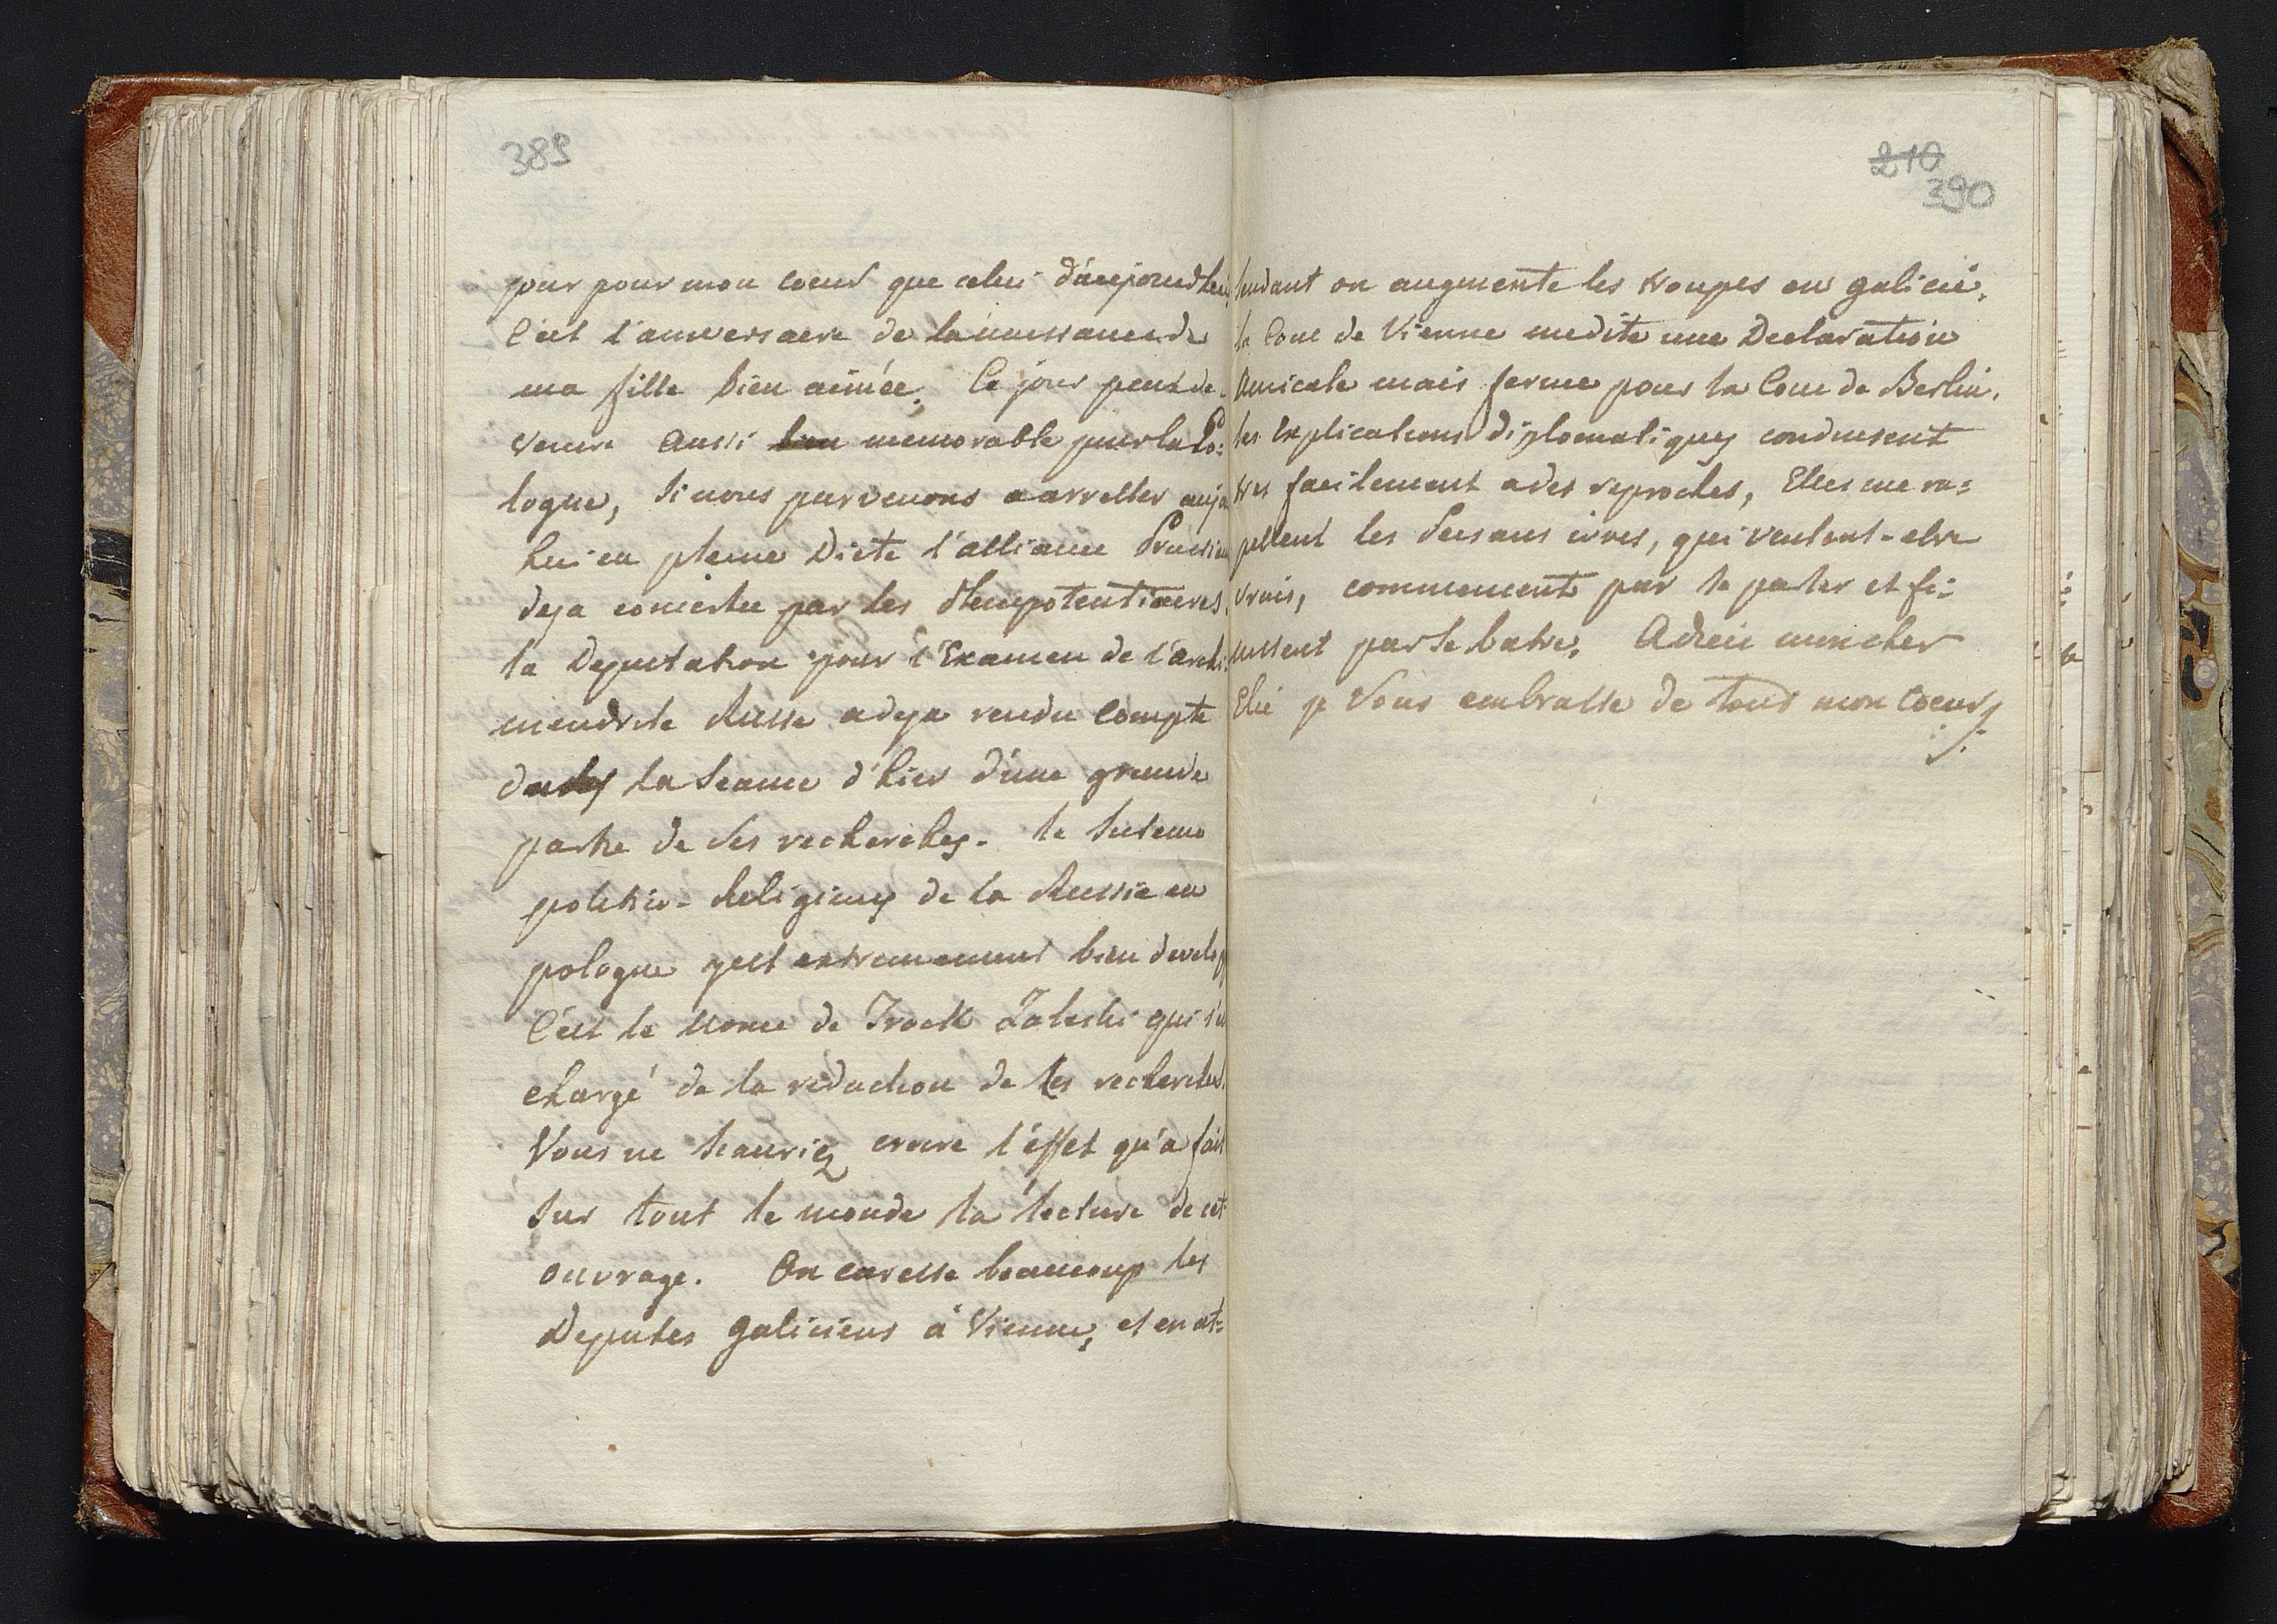 389
jour pour mon coeur que celui d'aujourdhui
C'est l'anniversaire de la naissance de
ma fille bien aimée. Ce jour peut de-
venir aussi memorable pour la Po=
logne, si nous parvenons a arretter aujo
hui en pleine Diete l'alliance Prussien
deja concertée par les Plenipotentiaires.
la Deputation pour l'Examen de l'archi
mendrite Russe a deja rendu compte
dans la seance d'hier d'une grande
partie de ses recherches. le sisteme
politico-Religieux de la Russie en
pologne y est extremement bien develop
C'est le Nonce de Trock Zaleski qui s'est
chargé de la redaction de ses recherches.
Vous ne scauriez croire l'effet qu'a fait
sur tout le monde la lecture de cet
ouvrage. On caresse beaucoup les
Deputes galiciens à Vienne, et en at=
210
390
tendant on augmente les troupes en galicie.
la Cour de Vienne medite une Declaration
Amicale mais ferme pour la Cour de Berlin.
les Explications diplomatiques conduisent
tres facilement a des reproches, Elles me ra=
pellent les Paisans ivres, qui
commencent par se parler et fi=
nissent par se batre. Adieu mon cher
Elie je Vous embrasse de tout mon coeur